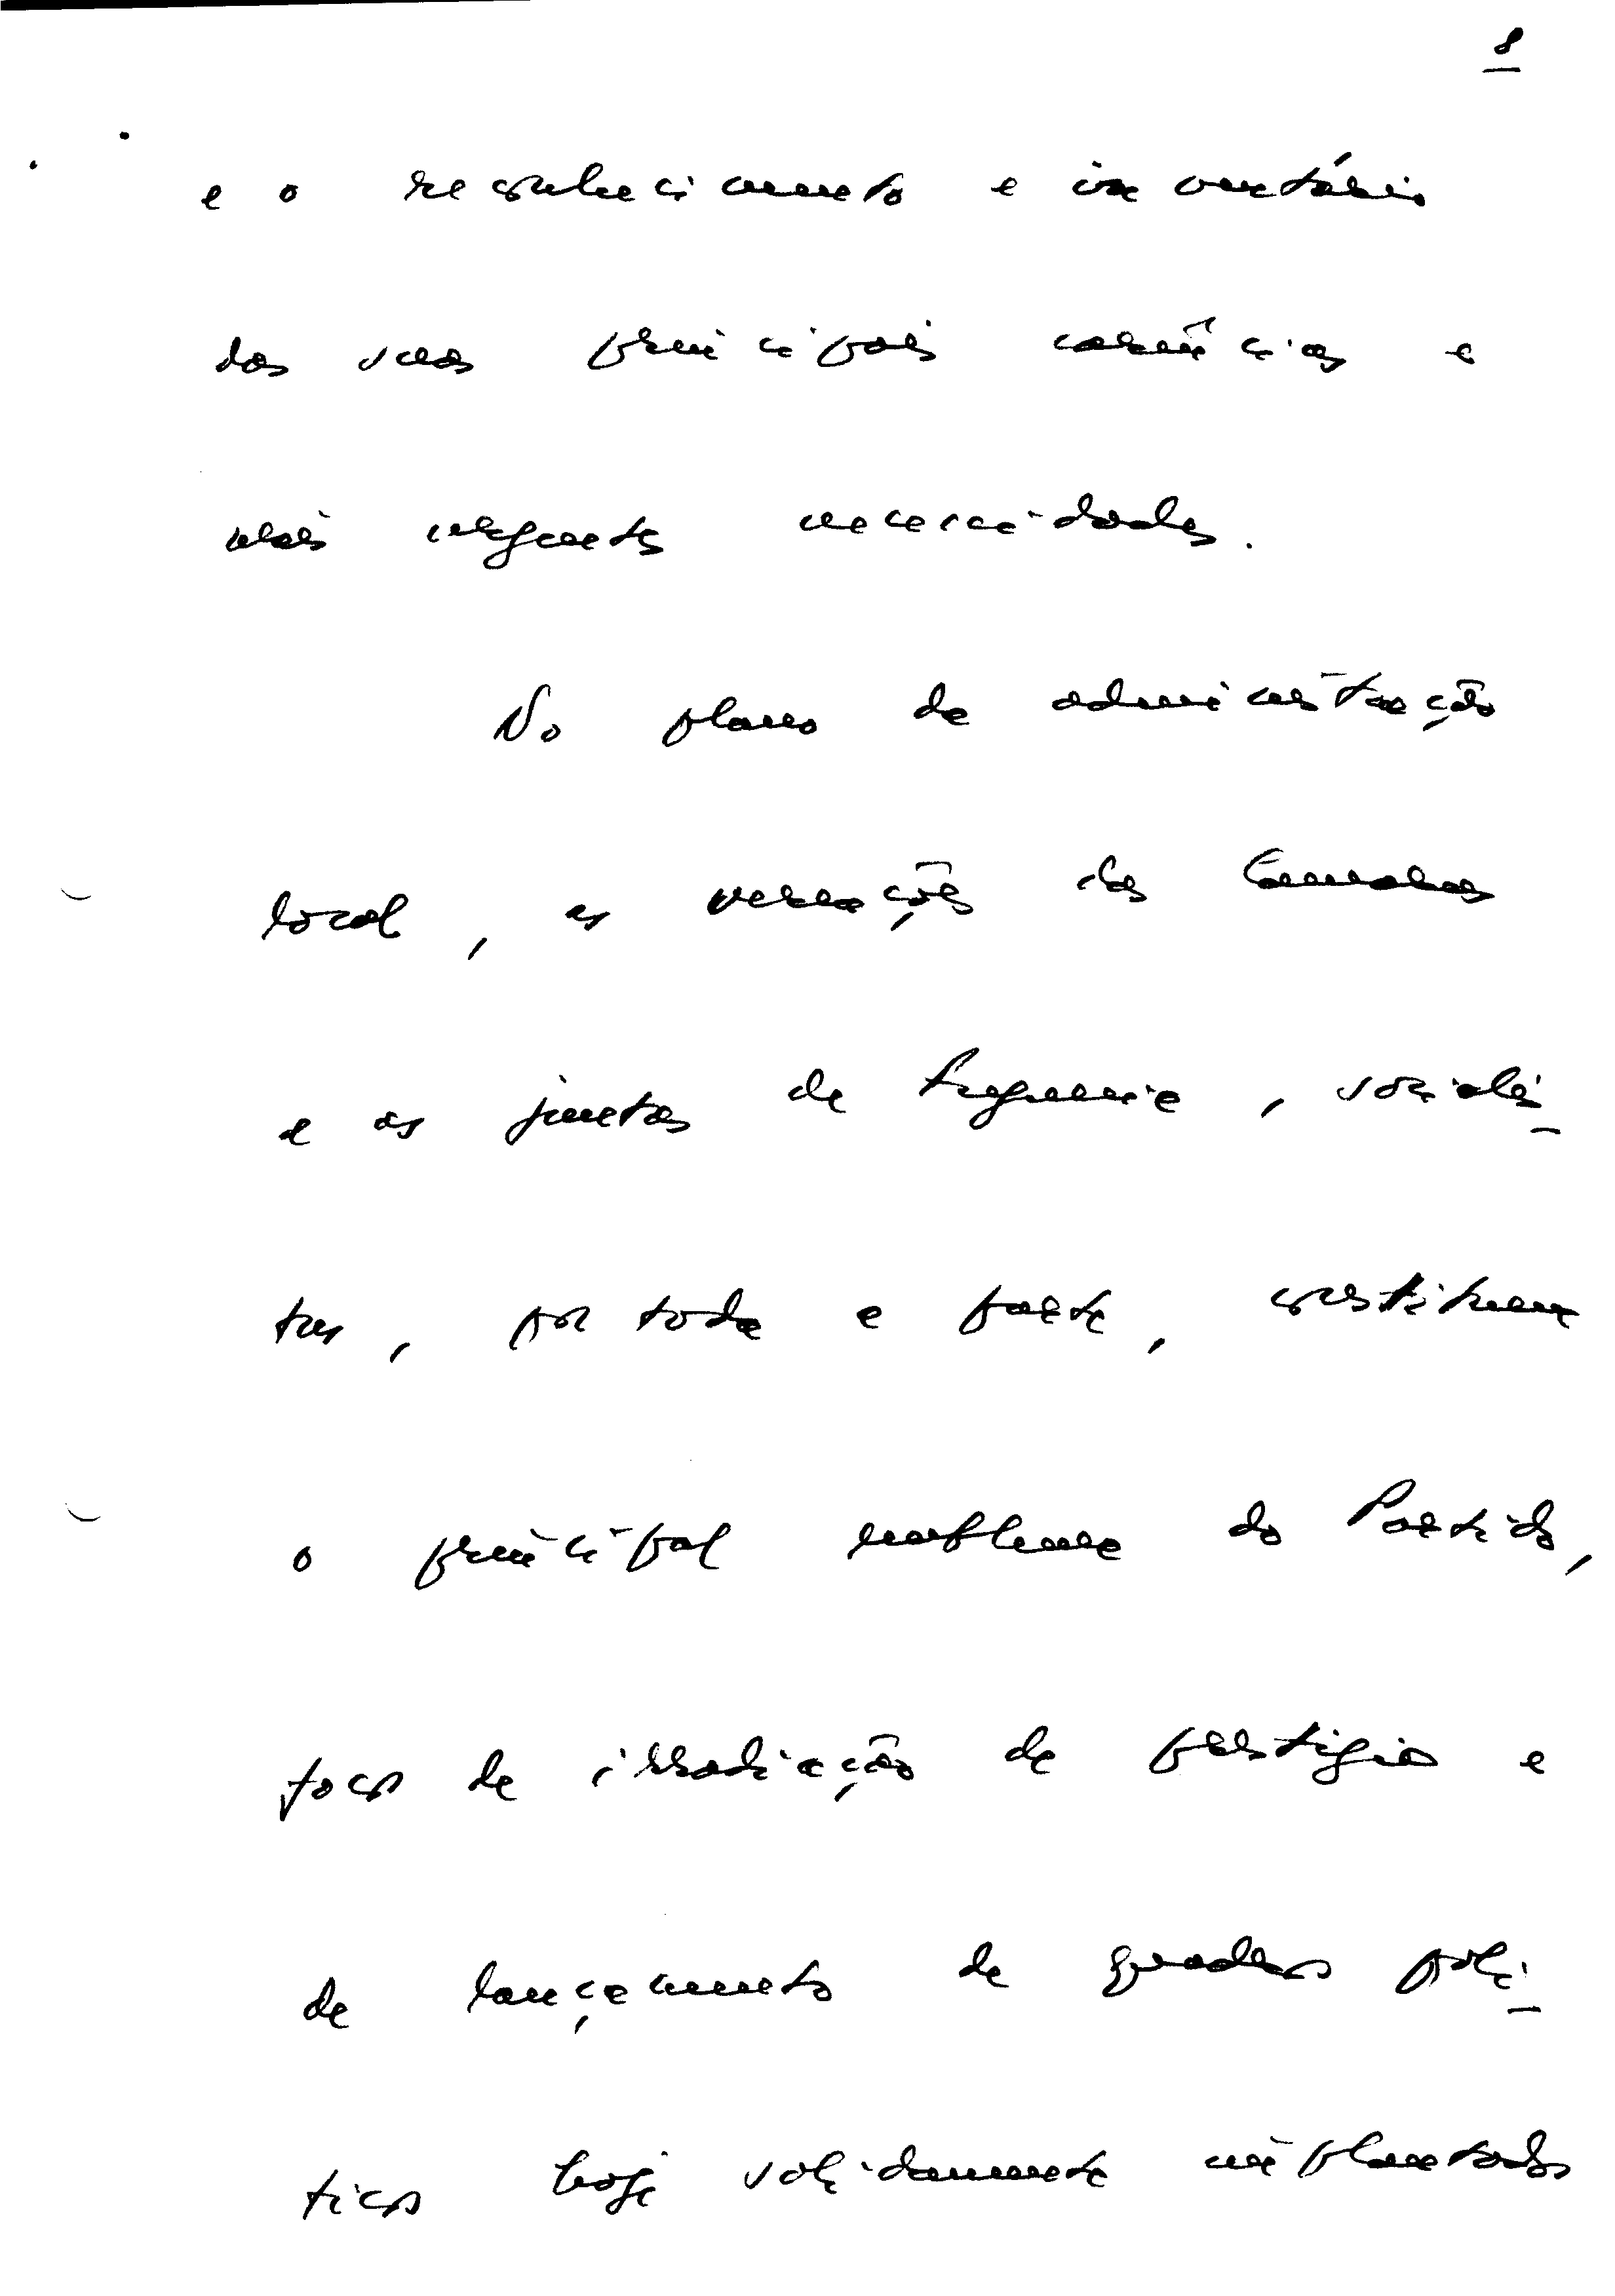 8
e o reconhecimento e inventário
das suas principais carências e
mais urgentes necessidades.
No plano da administração
local, as vereações das Câmaras
e as juntas de freguesia, socialis-
tas, por toda a parte, constituem
o principal emblema do Partido,
focos de irradiação de prestígio e
de lançamento de quadros polí-
ticos hoje solidamente implantados